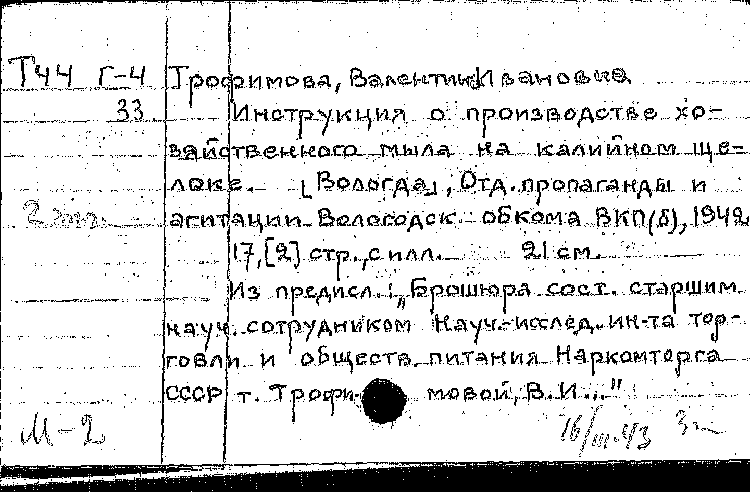 Т44 Г-4 Трофимова, Валентина Ивановна
33 Инструкция о производстве хо-
зяйственного мыла на калийном ще-
локе. [Вологда], Отд. пропаганды и
агитации Вологодск. обкома ВКП(б), 1942
17, [2] стр., с илл. 21 см.
Из предисл.: „Брошюра сост. старшим
науч. сотрудником Науч.-исслед. ин-та тор-
говли и обществ. питания Наркомторга
СССР т. Трофи- мовой, В. И..."
М-2
16/III-43